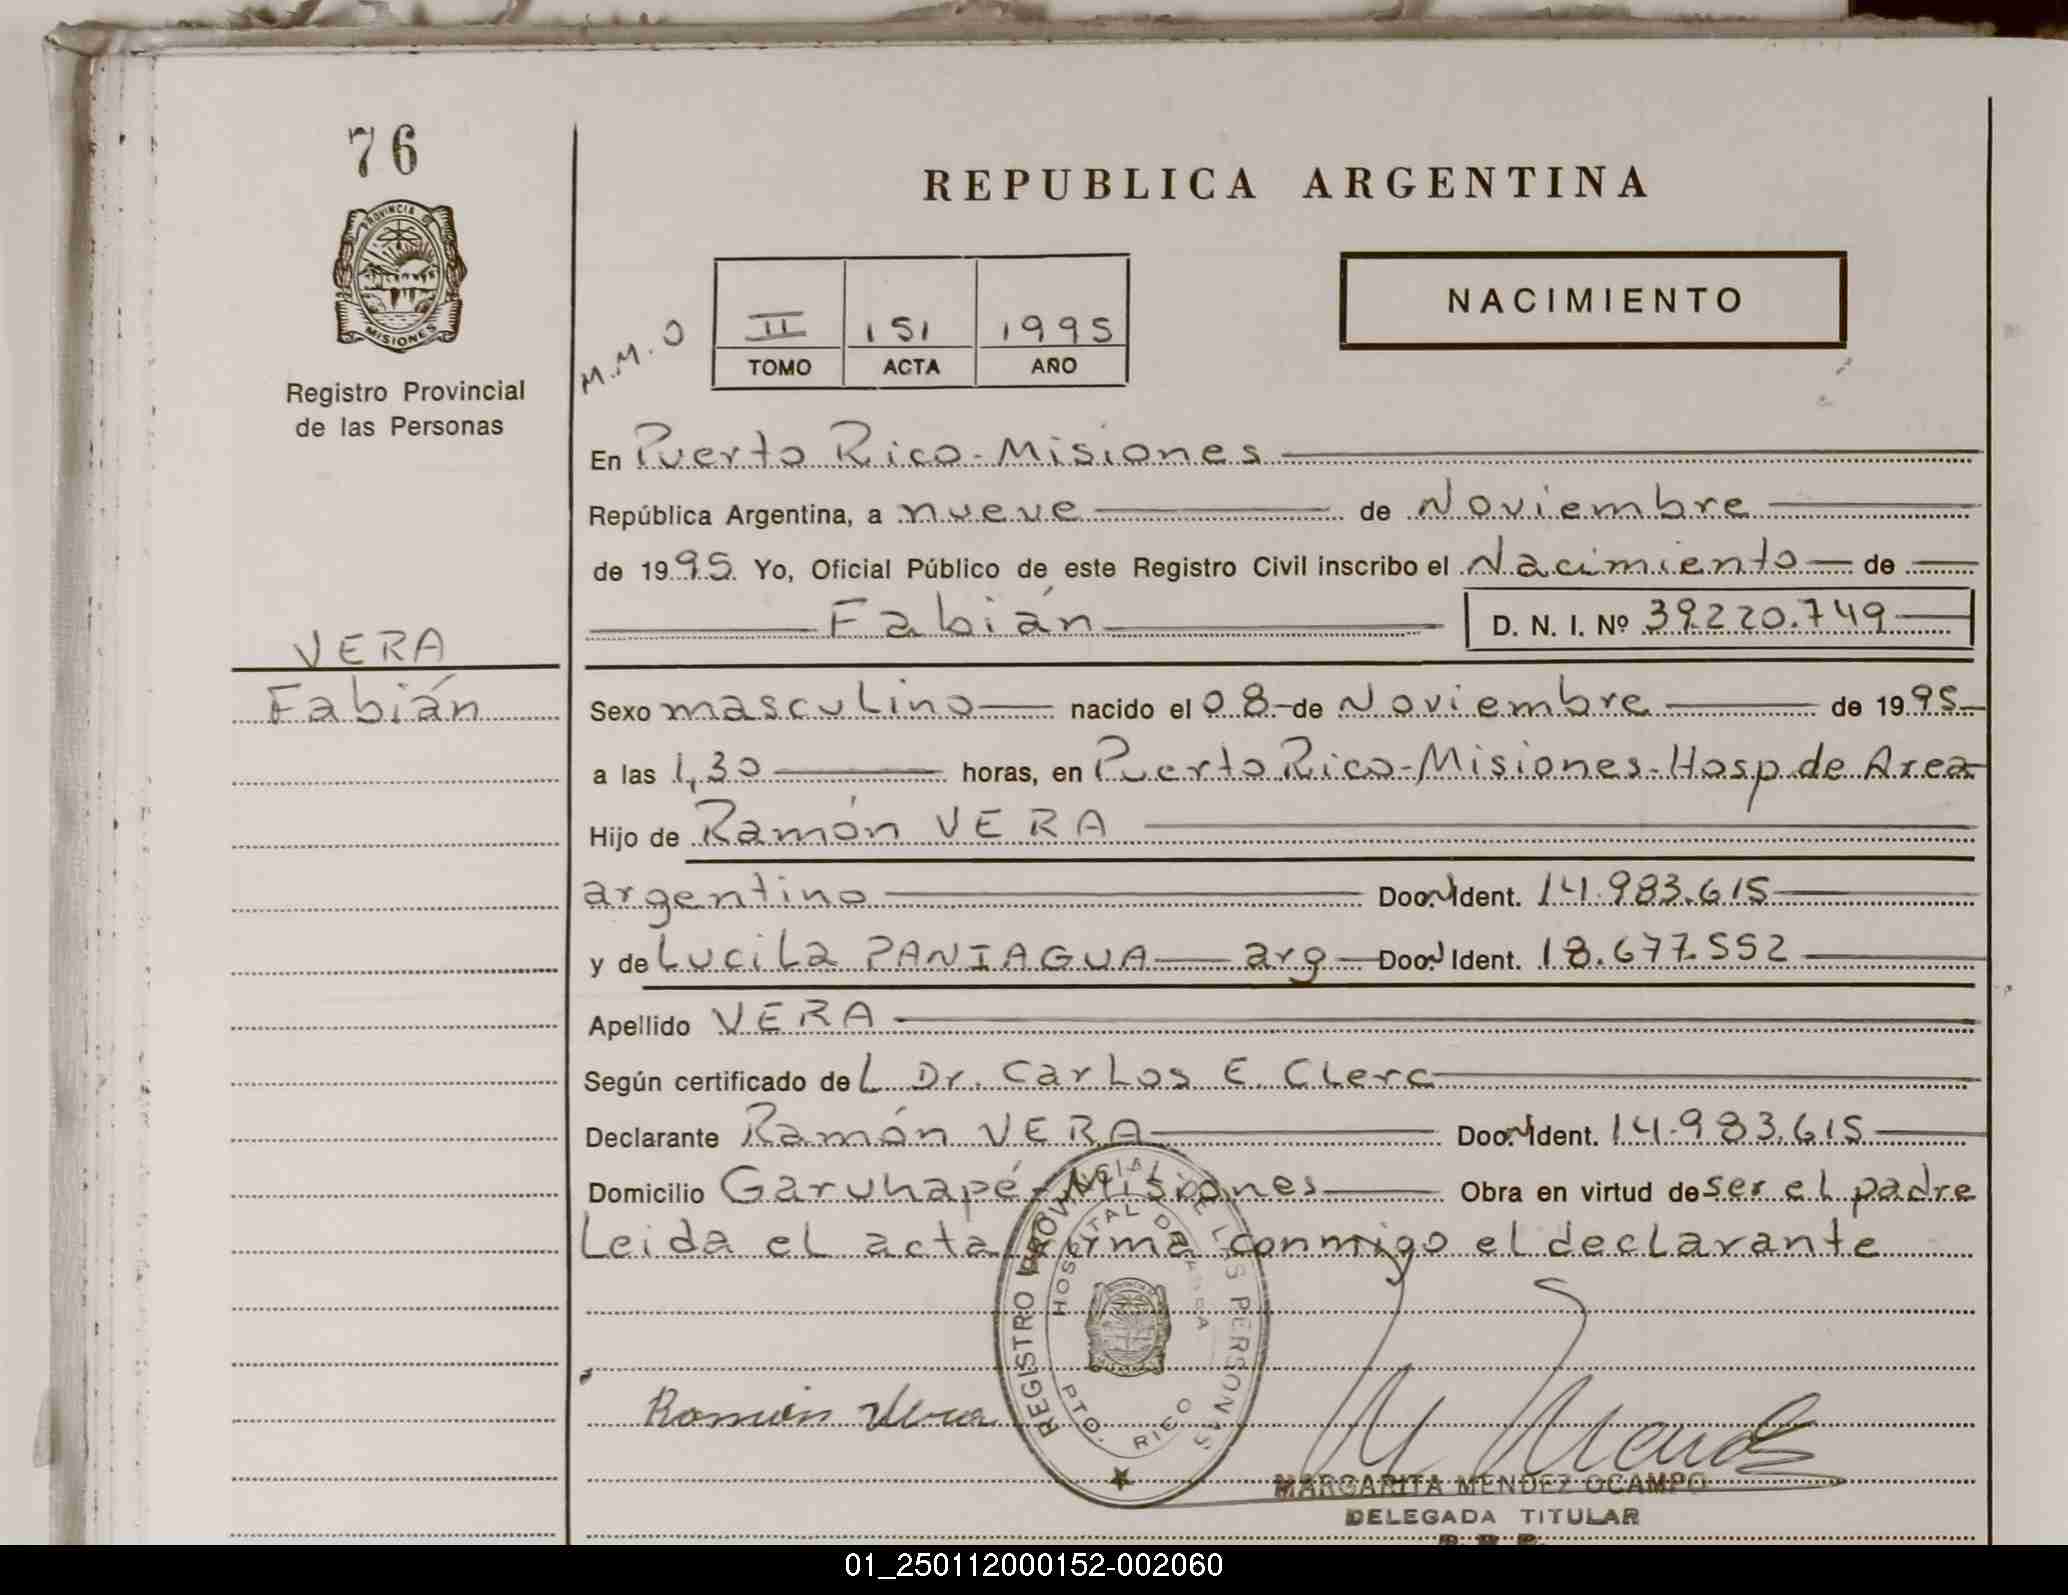 76
PROVINCIA DE
MISIONES
Registro Provincial
de las Personas
VERA
Fabián
REPUBLICA ARGENTINA
M.M.O
II 151 1995
TOMO ACTA AÑO
NACIMIENTO
En Puerto Rico - Misiones
República Argentina, a nueve de Noviembre
de 1995. Yo, Oficial Público de este Registro Civil inscribo el Nacimiento de
Fabián D. N. I. Nº 39.220.749
Sexo masculino nacido el 08 de Noviembre de 1995
a las 1,30 horas, en Puerto Rico - Misiones - Hosp. de Area
Hijo de Ramón VERA
argentino Doc. Ident. 14.983.615
y de Lucila PANIAGUA arg Doc. Ident. 18.677.552
Apellido VERA
Según certificado del Dr. Carlos E. Clerc
Declarante Ramón VERA Doc. Ident. 14.983.615
Domicilio Garuhapé - Misiones Obra en virtud de ser el padre
Leida el acta firma conmigo el declarante
REGISTRO PROVINCIAL DE LAS PERSONAS
HOSPITAL DE
PTO. RICO
Ramón Vera
MARGARITA MENDEZ OCAMPO
DELEGADA TITULAR
01_250112000152-002060